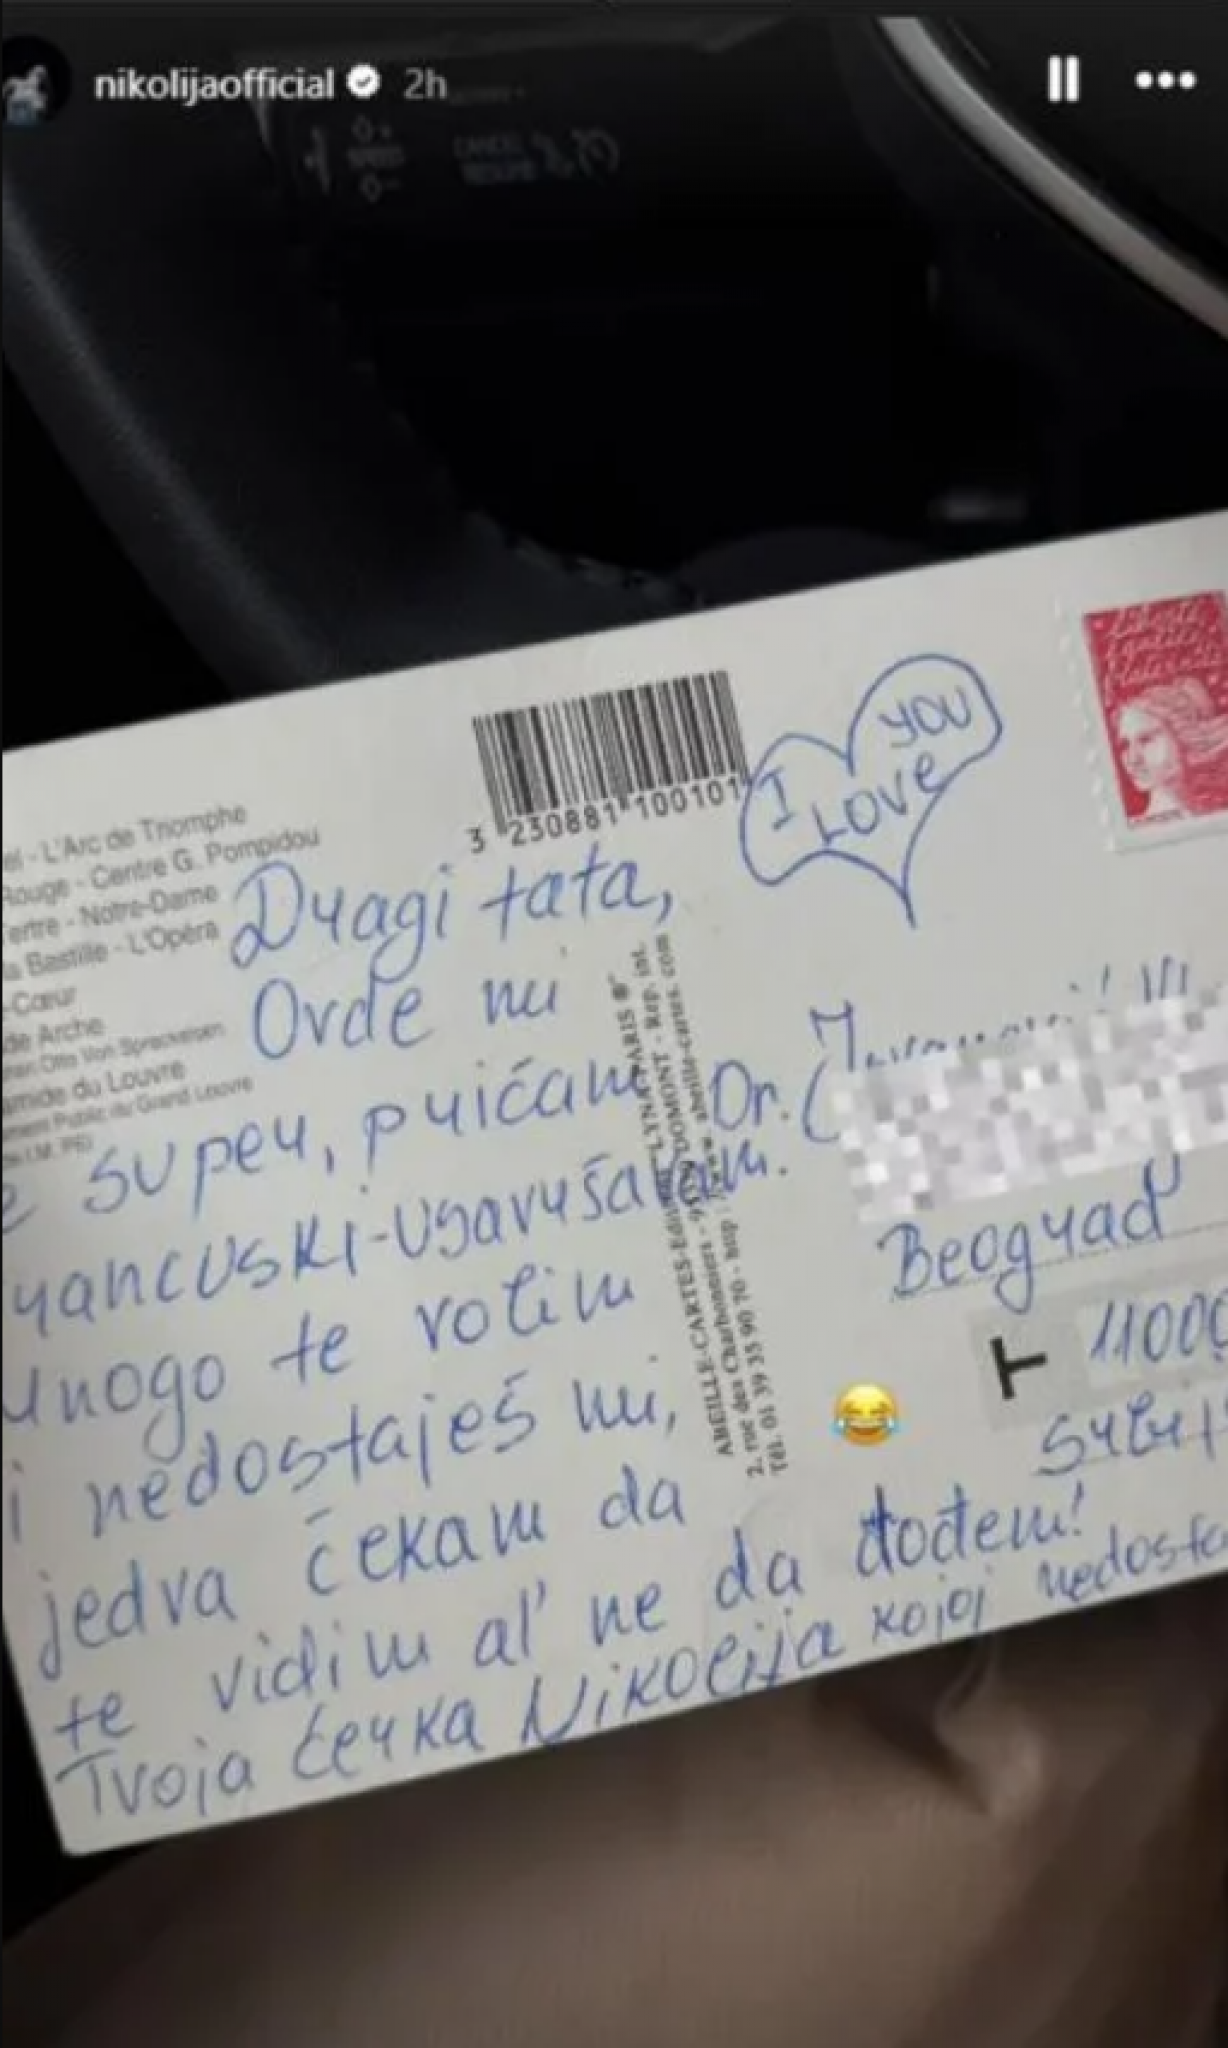 nikolijaofficial 2h
CANCEL
RESUME
L'Arc de Triomphe
Rouge - Centre G. Pompidou
Tertre - Notre-Dame
la Bastille - L'Opéra
-Cœur
de Arche
Otto Von Spreckelsen
du Louvre
Public du Grand Louvre
I.M. PEI
3 230881 100101
I LOVE YOU
Liberté
Egalité
Fraternité
Dragi tata,
Ovde mi
e super, pričam
rancuski-usavršavam.
mnogo te volim
i nedostaješ mi,
jedva čekam da
te vidim al' ne da dođem!
Tvoja ćerka Nikolija kojoj nedosta
ABEILLE-CARTES-Editions "LYNA-PARIS ®"
2, rue des Charbonniers - DOMONT - Rep. int.
Tél. 01 39 35 90 70 - http://www.abeille-cartes.com
Dr.
Beograd
T 11000